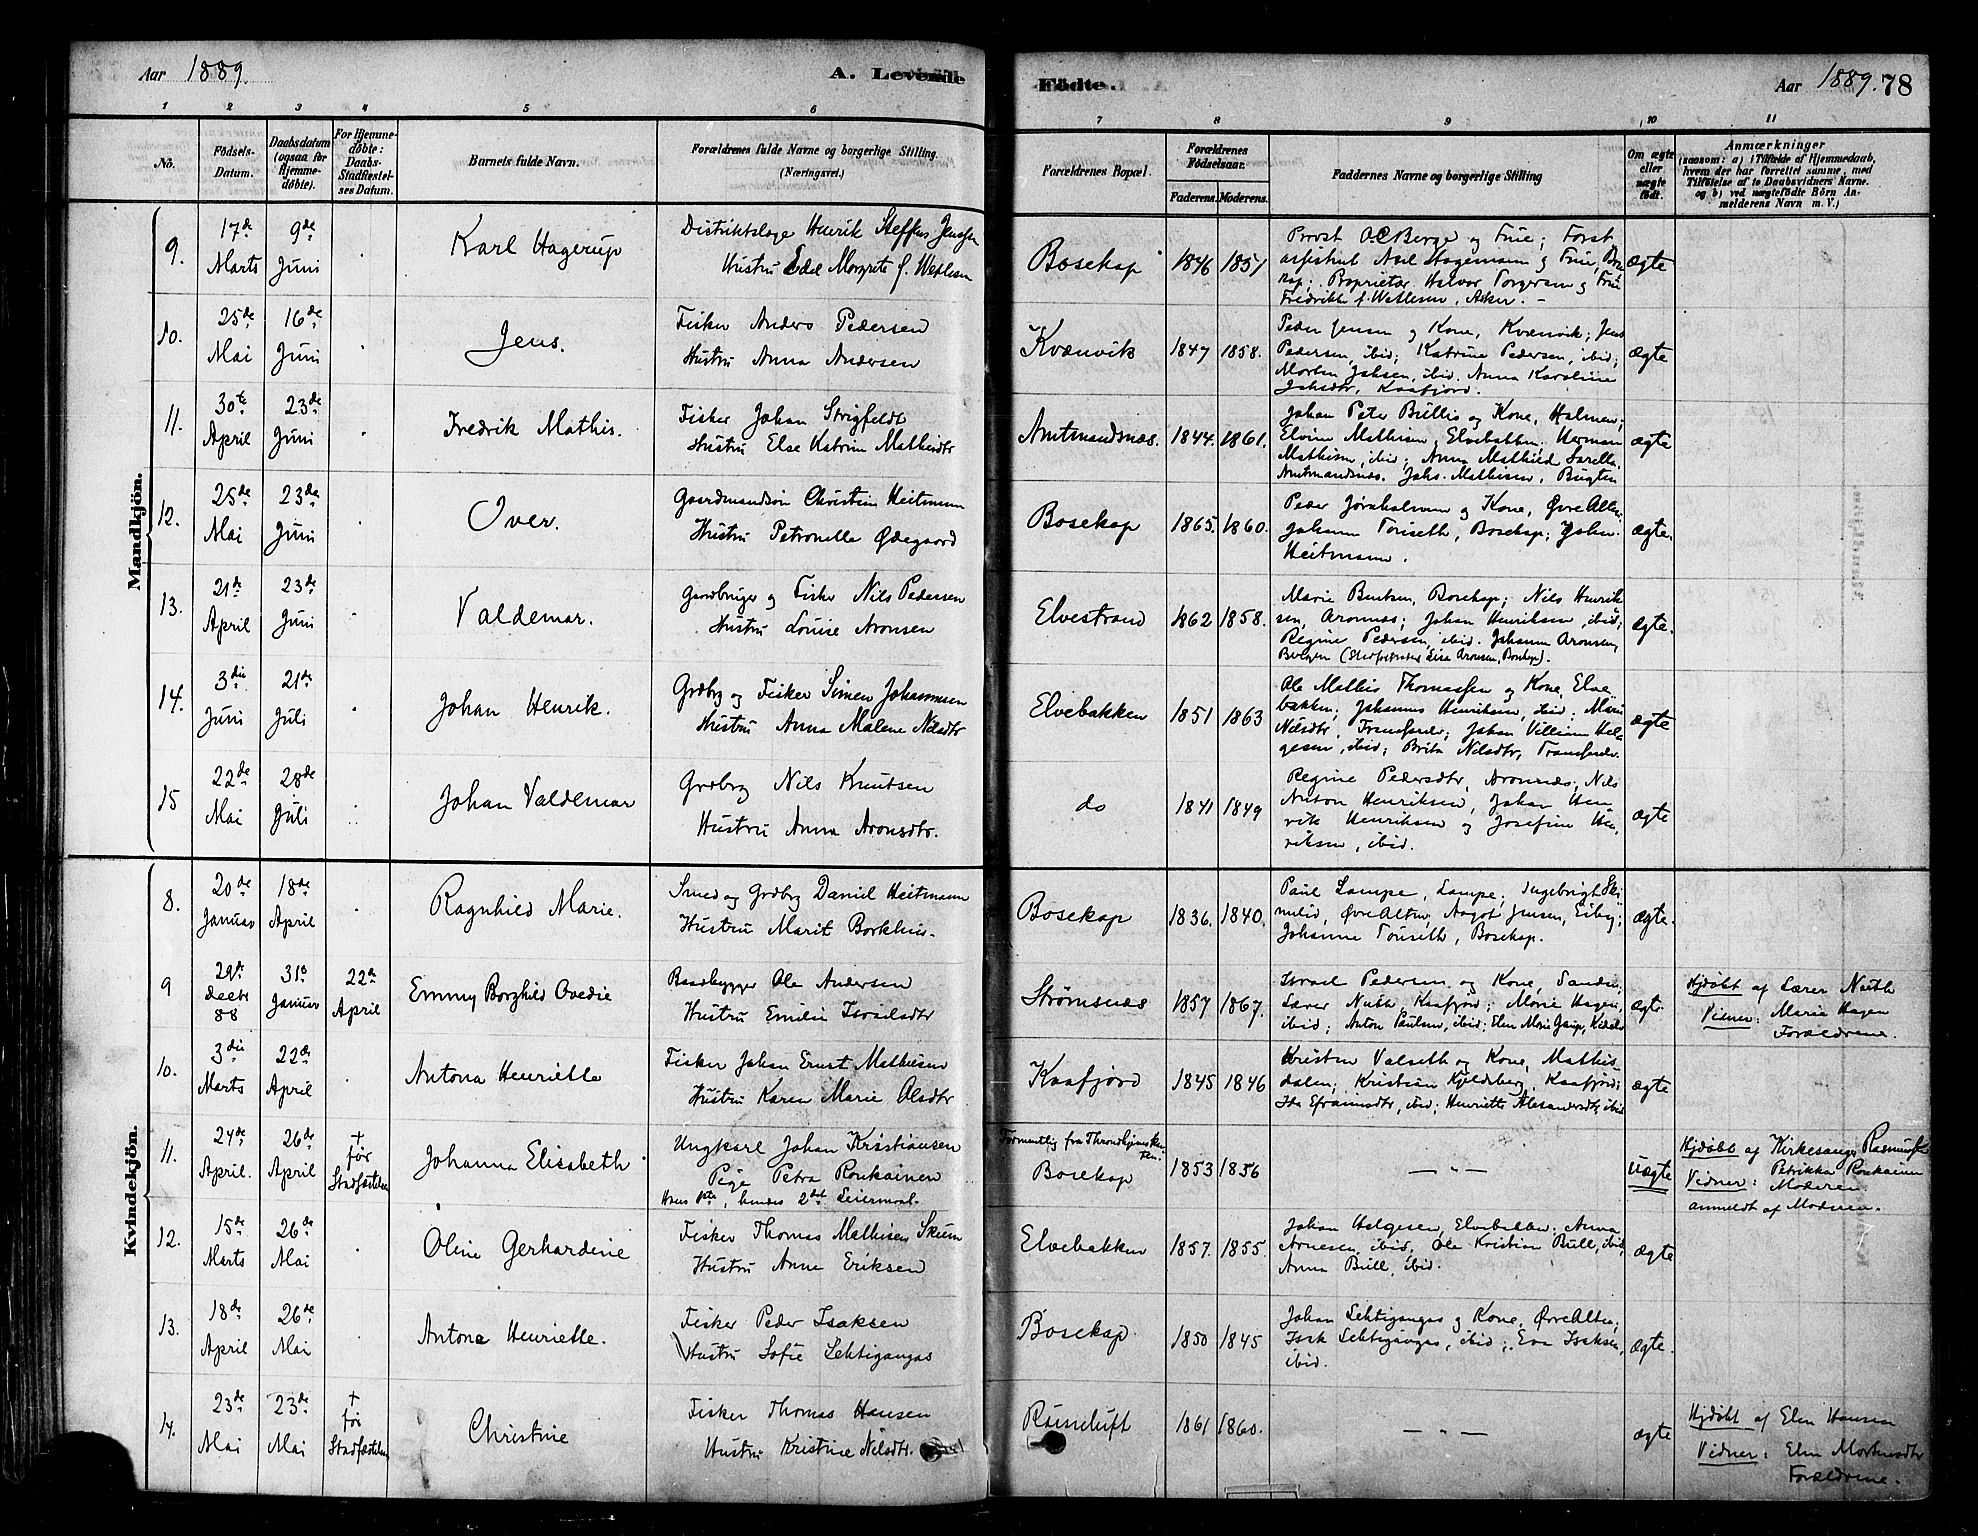 Aar 1889.
A. Levende
Födte.
Aar 1889. 78
1 2 3 4 5 6 7 8 9 10 11
No.
Födsels-Datum.
Daabsdatum (ogsaa for Hjemme-döbte).
For Hjemme-döbte: Daabs-Stadfæstel-ses Datum.
Barnets fulde Navn.
Forældrenes fulde Navne og borgerlige Stilling. (Næringsvei.)
Forældrenes Bopæl.
Forældrenes Födselsaar.
Faderens. Moderens.
Faddernes Navne og borgerlige Stilling
Om ægte eller uægte födt.
Anmærkninger
(saasom: a) i Tilfælde af Hjemmedaab,
hvem der har forrettet samme, med
Tilföielse af to Daabsvidners Navne.
og b) ved uægtefödte Börn An-
melderens Navn m. V.)
Mandkjön.
9. 17de Marts 9de Juni Karl Hagerup
Distriktslæge Henrik Steffen Jenssen
Hustru Edel Margrete f. Wettesen
Bosekop 1846 1851
Provst O.C. Berge og Frue; Forst
ægte
10. 25de Mai 16de Juni Jens.
Fisker Anders Pedersen
Hustru Anna Andersen
Kvænvik 1847 1858.
Peder Jensen og Kone, Kvænvik; Jens
Pedersen, ibid; Katrine Pedersen, ibid;
Morten Jahsen, ibid. Anna Karoline
Jahsdtr, Kaafjord.
ægte
11. 30te April 23de Juni Fredrik Mathis.
Fisker Johan Strigfeldt
Hustru Else Katrine Mathisdtr
Amtmandsnæs. 1844. 1861.
Johan Peter Bullis og Kone, Halmen;
Mathisen, Elvebakken. Herman
Mathisen, ibid; Anna Mathild
Amtmandsnæs. Johs. Mathisen, Bugten
ægte
12. 25de Mai 23de Juni Iver.
Gaardmandssön Christian Heitmann
Hustru Petronelle Ødegaard
Bosekop 1865. 1860.
Peder og Kone, Øvre Alten;
Johanna Touseth, Bosekop; Johan
Heitmann.
ægte.
13. 21de April 23de Juni Valdemar.
Gaardbruger og Fisker Nils Pedersen
Hustru Louise Aronsen
Elvestrand 1862 1858.
Marie Bentsen, Bosekop; Nils Henrik
sen, Aronnæs; Johan Henriksen, ibid;
Regine Pedersen, ibid. Johanna Aronsen,
ægte.
14. 3die Juni 21de Juli Johan Henrik.
Grdbrg og Fisker Simen Johannesen
Hustru Anna Malene Nilsdtr
Elvebakken 1851 1863
Ole Mathis Thomassen og Kone, Elve
bakken; Johannes Henriksen, ibid; Mari
Nilsdtr, Johan Villium Hel
gesen, ibid; Brita Nilsdtr,
ægte
15 22de Mai 28de Juli Johan Valdemar
Grdbrg Nils Knutsen
Hustru Anna Aronsdtr.
do 1841 1849
Regine Pedersdtr, Aronnæs; Nils
Henriksen, Johan Hen
rik Henriksen og Josefine Hen
riksen, ibid.
ægte
Kvindekjön.
8. 20de Januar 18de April Ragnhild Marie.
Smed og Grdbrg Daniel Heitmann
Hustru Marit Borkhus.
Bosekop 1836. 1840.
Paul Lampe, Lampe; Ingebrigt Ski
mulid, Øvre Alten, Aagot Jensen, Eiby;
Johanna Touseth, Bosekop.
ægte.
9 29de Decbr 88 31te Januar 22de April Emmy Borghild Ovedie
Baadbygger Ole Andersen
Hustru Emilie Israelsdtr
Strømsnæs 1857 1867.
Israel Pedersen og Kone,
Lærer Kaafjord; Marie Hagen,
ibid; Anton Paulsen, ibid;
ægte.
Hjdöbt af Lærer
Vidner: Marie Hagen
Forældrene.
10. 3die Marts 22de April Antona Henriette
Fisker Johan Ernst Mathisen
Hustru Karen Marie Olsdtr
Kaafjord 1845 1846
Kristen Valseth og Kone, Mathis
dalen; Kristian Kjeldsberg, Kaafjord;
Ida Efraimsdtr, ibid; Henriette Alexandersdtr, ibid
ægte
11. 24de April. 26de April + før Stadfæstelsen Johanna Elisabeth
Ungkarl Johan Kristiansen
Pige Petra Ronkainen
Hans 1ste, hendes 2det Leiermaal.
Formentlig fra Throndhjems
Bosekop 1853 1856
— " —
uægte
Hjdöbt af Kirkesanger
Vidner: Petrikka Ronkainen
Moderen
anmeldt af Moderen.
12. 15de Marts 26de Mai Oline Gerhardine
Fisker Thomas Mathisen Skum
Hustru Anne Eriksen
Elvebakken 1857. 1855
Johan Helgesen, Elvebakken. Anna
Arnesen, ibid. Ole Kristian Bull, ibid,
Anna Bull, ibid.
ægte
13. 18de April 26de Mai Antona Henriette.
Fisker Peder Isaksen
Hustru Sofie Lehtigangas
Bosekop. 1850 1845
Johan Lehtigangas og Kone, Øvre Alten;
Isak Lehtigangas, ibid; Eva Isaksen,
ibid.
ægte.
14. 23de Mai 23de Mai + før Stadfæstelsen Christine
Fisker Thomas Hansen
Hustru Kristine Nilsdtr.
1861 1860.
— " —
ægte
Hjdöbt af Elen Hansen
Vidner: Elen Mortensdtr
Forældrene.